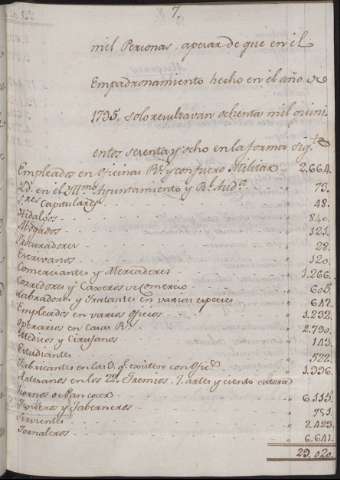 7.
mil Personas, apesar de que en el
Empadronamiento hecho en el año de
1795, solo resultavan ochenta mil quini
entos setenta y ocho en la forma sigte
Empleados en Oficinas Rs. y con fuero Militar 2.664.
Id. en el Illmo. Ayuntamiento y Rl. Auda. 73.
Sres. Capitulares 48.
Hidalgos 840.
Abogados 121.
Procuradores 28.
Escrivanos 120.
Comerciantes y Mercadores 1.266.
Corredores y Caxeros de Comercio 608.
Labradores y Tratantes en varias especies 617.
Empleados en varios oficios 1.232.
Operarios en Casas Rs. 2.790.
Medicos y Cirujanos 143.
Estudiantes 522.
Fabricantes en las 1.396.
Artesanos en los Gremios, 7. artes y ciento
Hornos 6.155.
y Taberneros 751.
Sirvientes 2.423.
Jornaleros 6.641.
29.020.